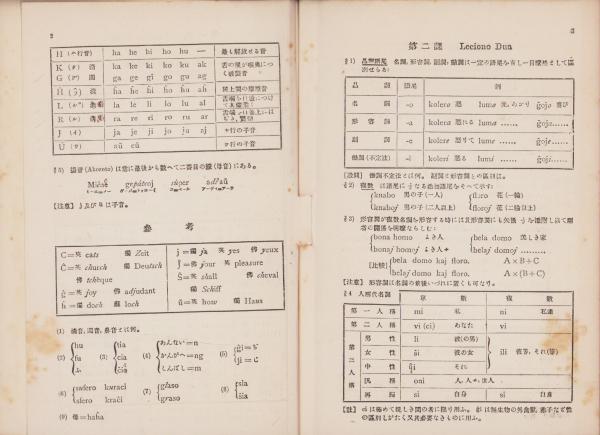 2
H (ハ行音) ha he hi ho hu — 最も解放せる音
K (カ) 清 ka ke ki ko ku ak
G (ガ) 濁 ga ge gi go gu ag
Ĥ
L
R ra re ri ro ru ar
J (イ) ja je ji jo ju aj ヤ行の子音
Ŭ (ウ) aŭ eŭ ワ行の子音
§5) 揚音 (Akcento) は常に最後から數へて二番目の綴(母音)にある。
gepatroj super adiaŭ
【注意】 j 及び ŭ は子音。
參考
C=英 cats 獨 Zeit
Ĉ=英 church 獨 Deutsch
佛 tchèque
ĝ=英 joy 佛 adjudant
ĥ=獨 doch 蘇 loch
j=獨 ja 英 yes 佛 yeux
ĵ=佛 jour 英 pleasure
Ŝ=英 shall 佛 cheval
獨 Schiff
ŭ=英 how 獨 Haus
(1)
(2) hu fu ふ
(3) tia cia ĉia
(4) あんない=n かんがへ=ng しんぱい=m
(5) ĝi=ぢ ji=じ
(6) svfero kvraci sfero kraĉi
(7) glaso graso
(8) sia ŝia
(9) 母=haha
3
第二課 Leciono Dua
§1) 品詞語尾 名詞、形容詞、副詞、動詞は一定の語尾を有し一目瞭然として區別せらる:
品詞 語尾 例
名詞 -o kolero 怒 lumo 光、あかり ĝojo 喜び
形容詞 -a kolera 怒れる luma …… ĝoja……
副詞 -e kolere 怒りて lume …… ĝoje……
動詞(不定法) -i koleri 怒る lumi …… ĝoji……
【設問】 動詞不定法とは何。 副詞と形容詞との區別は。
§2) 複數 は語尾に j なる添加語尾をそへて示す:
knabo 男の子(一人) floro 花(一輪)
knaboj 男の子(二人以上) floroj 花(二輪以上)
§3) 形容詞が複數名詞を形容する時には其形容詞にも矢張 j を連用し以て兩者の關係を明瞭ならしむ:
bona homo よき人 bela domo 美しき家
bonaj homoj よき人々 belaj domoj………
【比較】 bela domo kaj floro. A×B+C
belaj domo kaj floro. A×(B+C)
【注意】 形容詞は名詞の前後いづれに置くも可なり。
§4 人稱代名詞
單數 複數
第一人稱 mi 私 ni 私達
第二人稱 vi (ci) あなた vi
第三人稱 男性 li 彼(の男) ili 彼等、それ(等)
女性 ŝi 彼の女
中性 ĝi それ
汎稱 oni 人、人々、世人
再歸 si 自身 si 自身
【註】 ci は極めて親しき間の者に限り用ふ。 ĝi は無生物の外禽獸、赤子など性の區別しがたく又其必要なきものに用ふ。